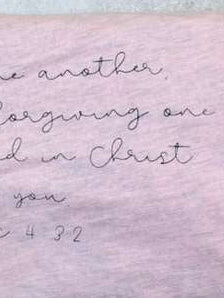 ne another,
forgiving one
d in Christ
you
4 32